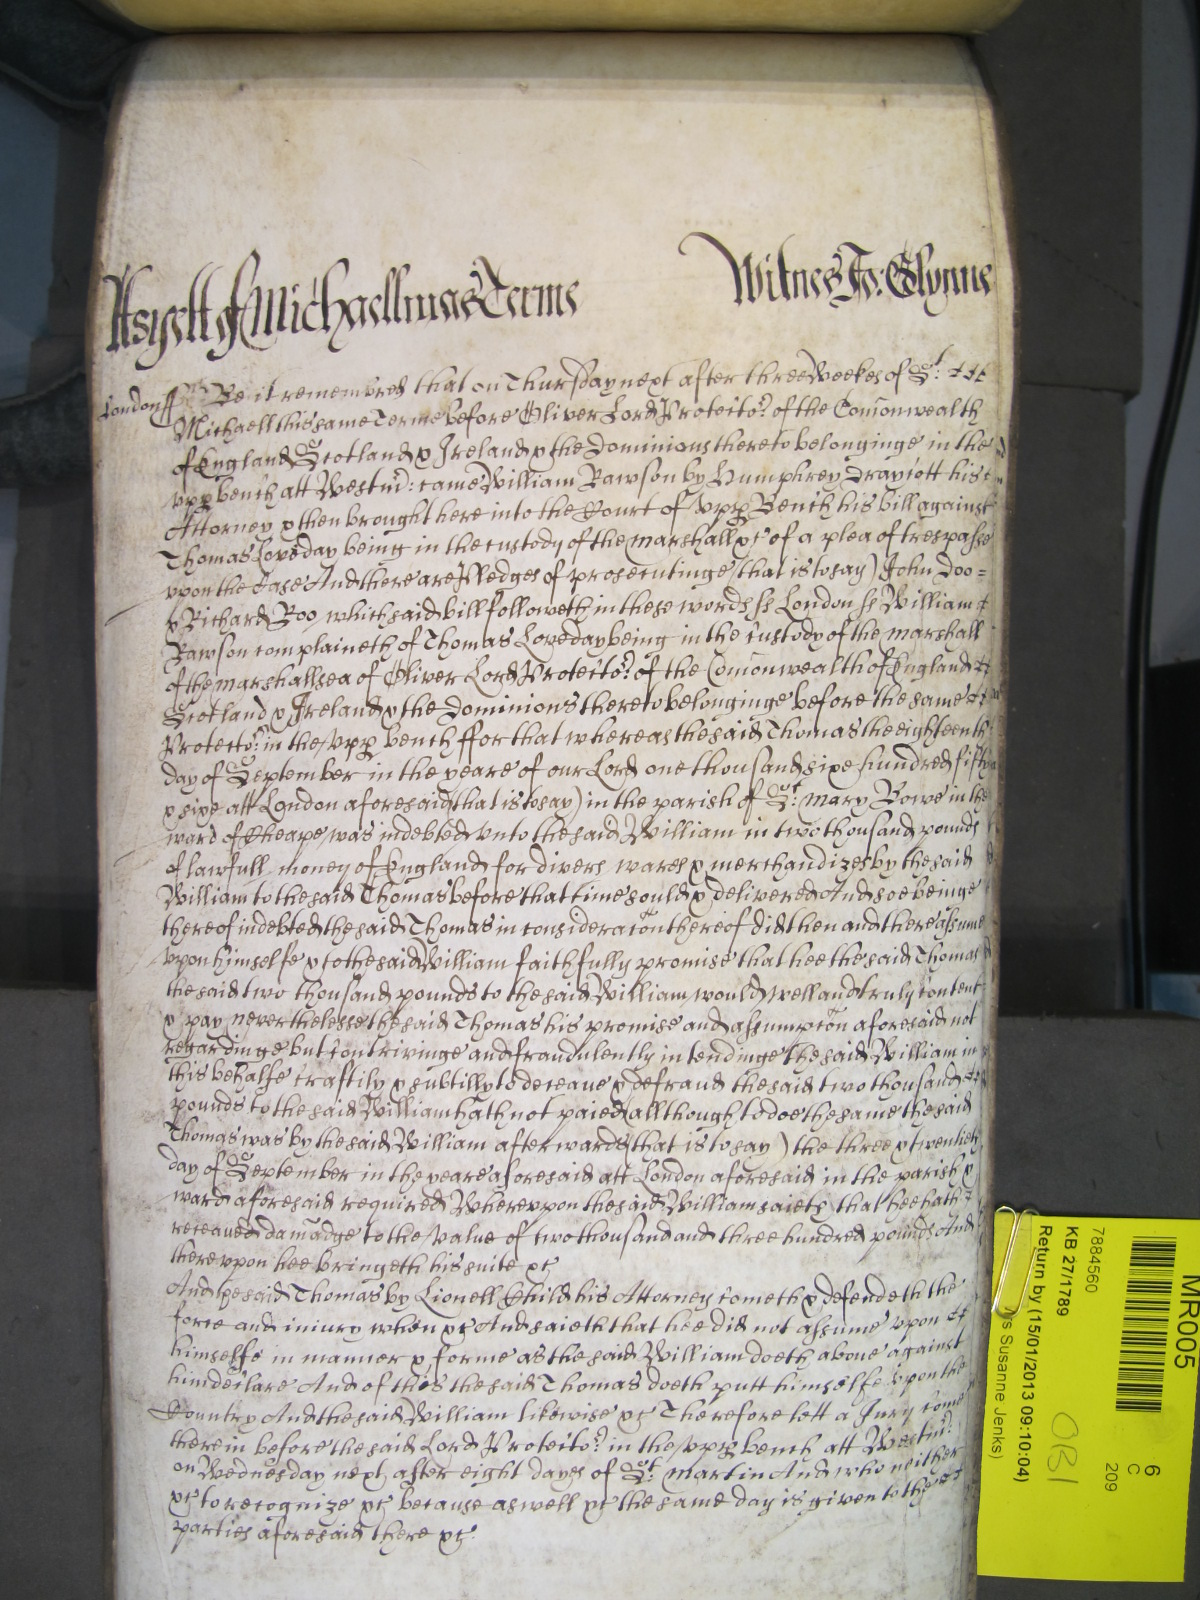 As yett of Michaellmas Terme
Witnes Jo: Glynne
London ss Be it remembred that on Thursday next after three Weekes of St.
Michaell this same Terme before Oliver Lord Protector of the Comonwealth
of England Scotland & Ireland & the Dominions thereto belonginge in the
upp bench att Westm: came William Rawson by Humphrey Draycott his
Attorney & then brought here into the Court of Upp Bench his bill against
Thomas Loveday being in the custody of the marshall &c of a plea of trespasse
upon the Case And there are Pledges of prosecutinge (that is to say) John Doo =
& Richard Roo which said bill followeth in these words ss London ss William
Rawson complaineth of Thomas Loveday being in the custody of the marshall
of the marshallsea of Oliver Lord Protector of the Comonwealth of England
Scotland & Ireland & the Dominions thereto belonginge before the same
Protector in the upp bench ffor that whereas the said Thomas the eighteenth
day of September in the yeare of our Lord one thousand sixe hundred fifty
& sixe att London aforesaid (that is to say) in the parish of St. Mary Bowe in the
ward of Cheape was indebted unto the said William in two thousand pounds
of lawfull money of England for divers wares & merchandizes by the said
William to the said Thomas before that time sould & delivered And soe beinge
thereof indebted the said Thomas in consideracon thereof did then and there assume
upon himselfe & to the said William faithfully promise that hee the said Thomas
the said two thousand pounds to the said William would well and truly content
& pay neverthelesse the said Thomas his promise and assumpcon aforesaid not
regardinge but contrivinge and fraudulently intendinge the said William in
this behalfe craftily & subtilly to deceave & defraud the said two thousand
pounds to the said William hath not paied (allthough to doe the same the said
Thomas was by the said William afterwards (that is to say) the three & twentieth
day of September in the yeare aforesaid att London aforesaid in the parish &
ward aforesaid required Whereupon the said William saieth that hee hath
receaved damadge to the value of two thousand and three hundred pounds And
thereupon hee bringeth his suite &c
And the said Thomas by Lionell Child his Attorney cometh & defendeth the
force and iniury when &c And saieth that hee did not assume upon
himselfe in manner & forme as the said William doeth above against
him declare And of this the said Thomas doeth putt himselfe upon the
Country And the said William likewise &c Therefore lett a Jury come
therein before the said Lord Protector in the upp bench att Westm:
on Wednesday next after eight dayes of St. Martin And who neither
&c to recognize &c because aswell &c the same day is given to the
parties aforesaid there &c
MR005
6
C
209
7884560
KB 27/1789
Return by (15/01/2013 09:10:04)
Susanne Jenks)
OBI